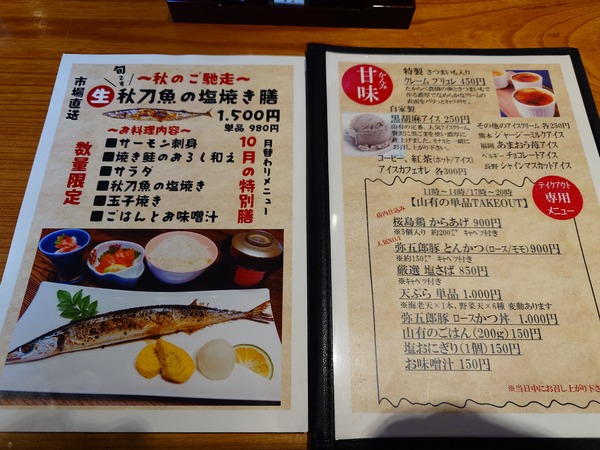 旬です
〜秋のご馳走〜
市場直送
生 秋刀魚の塩焼き膳
1,500円
単品 980円
〜お料理内容〜
■サーモン刺身
■焼き鮭のおろし和え
■サラダ
■秋刀魚の塩焼き
■玉子焼き
■ごはんとお味噌汁
数量限定
月替わりメニュー
10月の特別膳
甘味
かんみ
特製 さつまいも入り
クレーム ブリュレ 450円
自家製
黒胡麻アイス 250円
コーヒー、紅茶(ホット/アイス)
アイスカフェオレ 各300円
その他のアイスクリーム 各250円
熊本 ジャージーミルクアイス
福岡 あまおう苺アイス
ベルギー チョコレートアイス
長野 シャインマスカットアイス
テイクアウト
専用
メニュー
11時〜14時/17時〜20時
【山有の単品TAKEOUT】
店内仕込み
桜島鶏 からあげ 900円
※5個入り 約200㌘ キャベツ付
人気NO.1
弥五郎豚 とんかつ(ロース/モモ)900円
※約150㌘ キャベツ付
厳選 塩さば 850円
※キャベツ付
天ぷら 単品 1,000円
※海老天×1本、野菜天×6種 変動あります
弥五郎豚 ロースかつ丼 1,000円
山有のごはん(200g)150円
塩おにぎり(1個)150円
お味噌汁 150円
※当日中にお召し上がり下さい